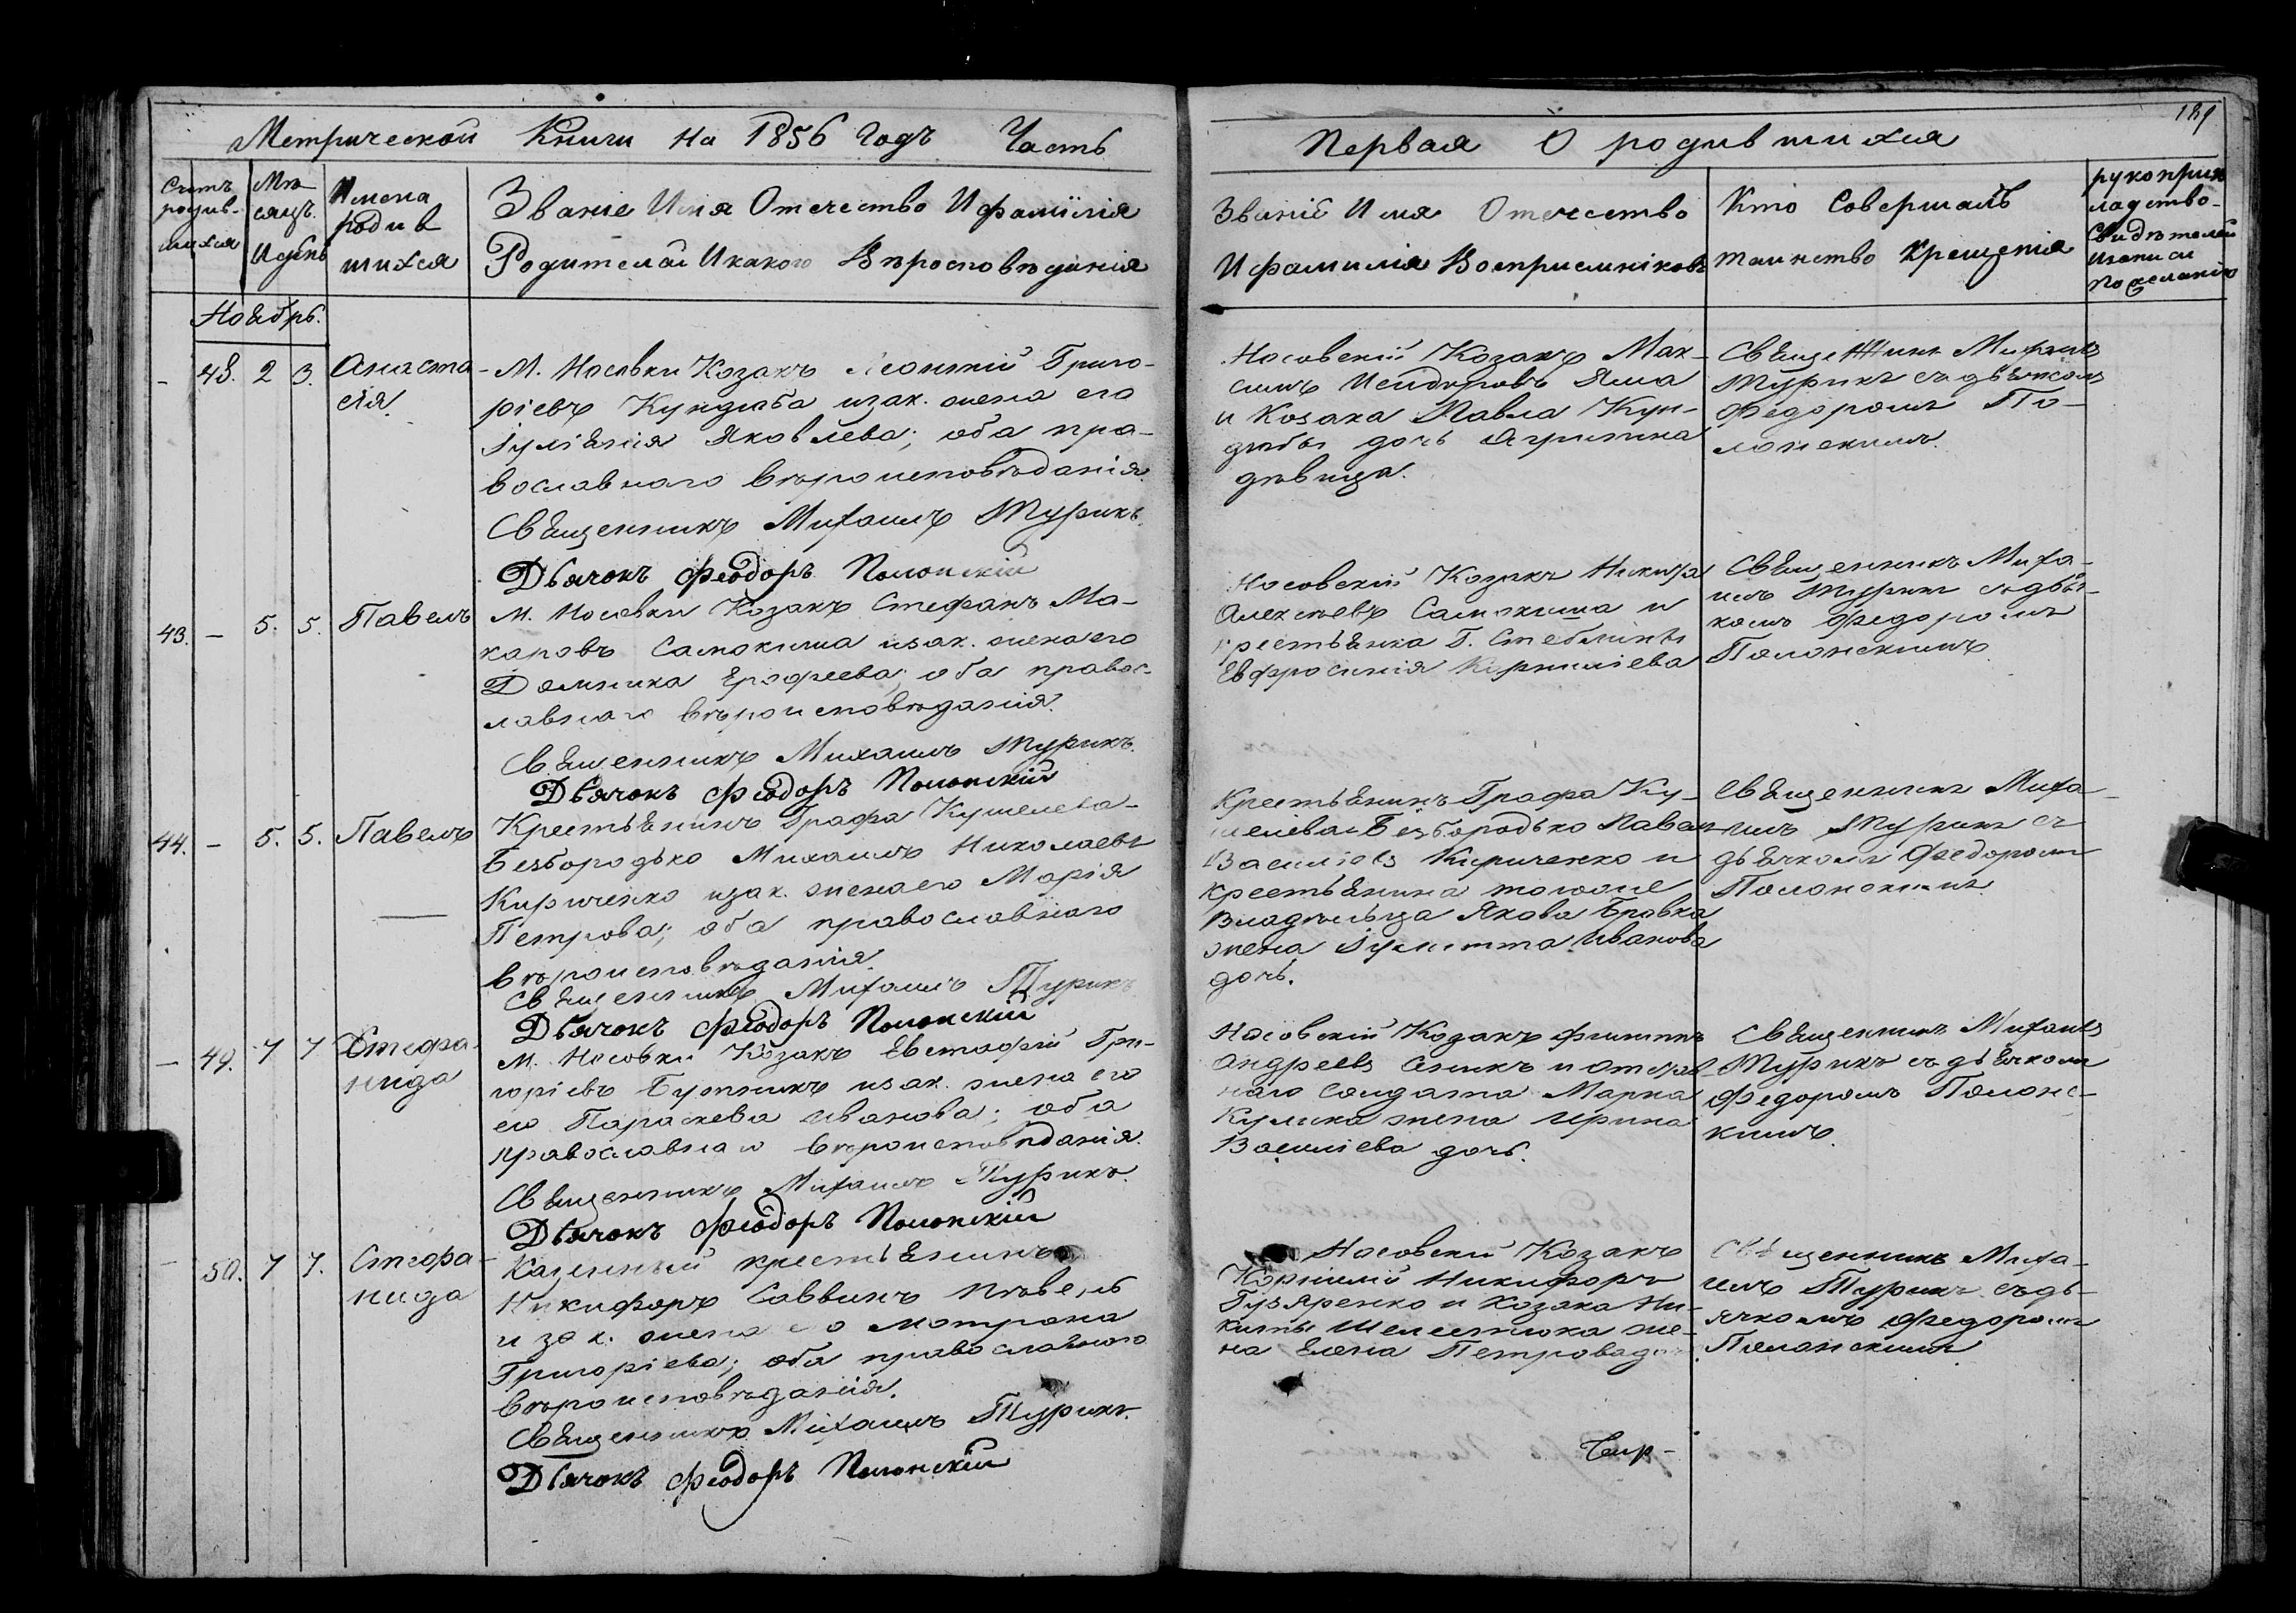 189
Метрической Книги На 1856 Годъ Часть
Первая О родившихся
Счетъ родив-шихся
Мѣ-сяцъ. И день
Имена родив шихся
Званіе Имя Отечество И фамилія
Родителей И какого Вѣроисповѣданія
Званіе Имя Отечество
И фамилія Воспріемниковъ
Кто Совершалъ
таинство Крещенія
рукоприк
ладство
Свидѣтелей
и записи
по желанію
Ноябрь.
- 48. 2 3. Анаста-
сія.
М. Носовки Козакъ Леонтій Григо-
ріевъ Кундюба изак. жена его
Іуліанія Яковлева; оба пра-
вославнаго вѣроисповѣданія.
Священникъ Михаилъ Турикъ.
Дьячокъ Феодоръ Полонскій
Носовскій Козакъ Мак-
симъ Исидоровъ Яша
и Козака Павла Кун-
дюбы дочь Агрипина
дѣвица.
Священникъ Михаилъ
Турикъ съ дьячкомъ
Федоромъ По-
лонскимъ.
43. - 5. 5. Павелъ
М. Носовки Козакъ Стефанъ Ма-
каровъ Самокиша изак. жена его
Домникa Ерофеева; оба правос-
лавнаго вѣроисповѣданія.
Священникъ Михаилъ Турикъ.
Дьячокъ Феодоръ Полонскій
Носовскій Козакъ Никита
Алексѣевъ Самокиша и
крестьянка Г. Стеблинъ
Евфросинія Корниліева
Священникъ Миха-
илъ Турикъ съ дьяч-
комъ Федоромъ
Полонскимъ.
44. - 5. 5. Павелъ
Крестьянинъ Графа Кушелева-
Безбородько Михаилъ Николаевъ
Кириченко изак. жена его Марія
Петрова; оба православнаго
вѣроисповѣданія.
Священникъ Михаилъ Турикъ
Дьячокъ Феодоръ Полонскій
Крестьянинъ Графа Ку-
шелева Безбородько Павелъ
Василіевъ Кириченко и
крестьянина того же
Владѣльца Якова Бровка
жена Іулитта Иванова
дочь.
Священникъ Миха-
илъ Турикъ съ
дьячкомъ Федоромъ
Полонскимъ.
- 49. 7 7 Стефа-
нида
М. Носовки Козакъ Евстафій Гри-
горіевъ Бутникъ изак. жена его
его Параскева Иванова; оба
православнаго вѣроисповѣданія.
Священникъ Михаилъ Турикъ.
Дьячокъ Феодоръ Полонскій
Носовскій Козакъ Филиппъ
Андреевъ Сеникъ и отстав-
наго солдата Марка
Кулика жена Ирина
Василіева дочь.
Священникъ Михаилъ
Турикъ съ дьячкомъ
Федоромъ Полонс-
кимъ.
- 50. 7 7. Стефа-
нида
Казенный крестьянинъ
Никифоръ Саввинъ
и зак. жена его Матрона
Григоріева; оба православнаго
вѣроисповѣданія.
Священникъ Михаилъ Турикъ.
Дьячокъ Феодоръ Полонскій
Носовскій Козакъ
Корнилій Никифоръ
Гузяренко и Козака Ни-
киты Шелестюка же-
на Елена Петрова
Священникъ Миха-
илъ Турикъ съ дь-
ячкомъ Федоромъ
Полонскимъ